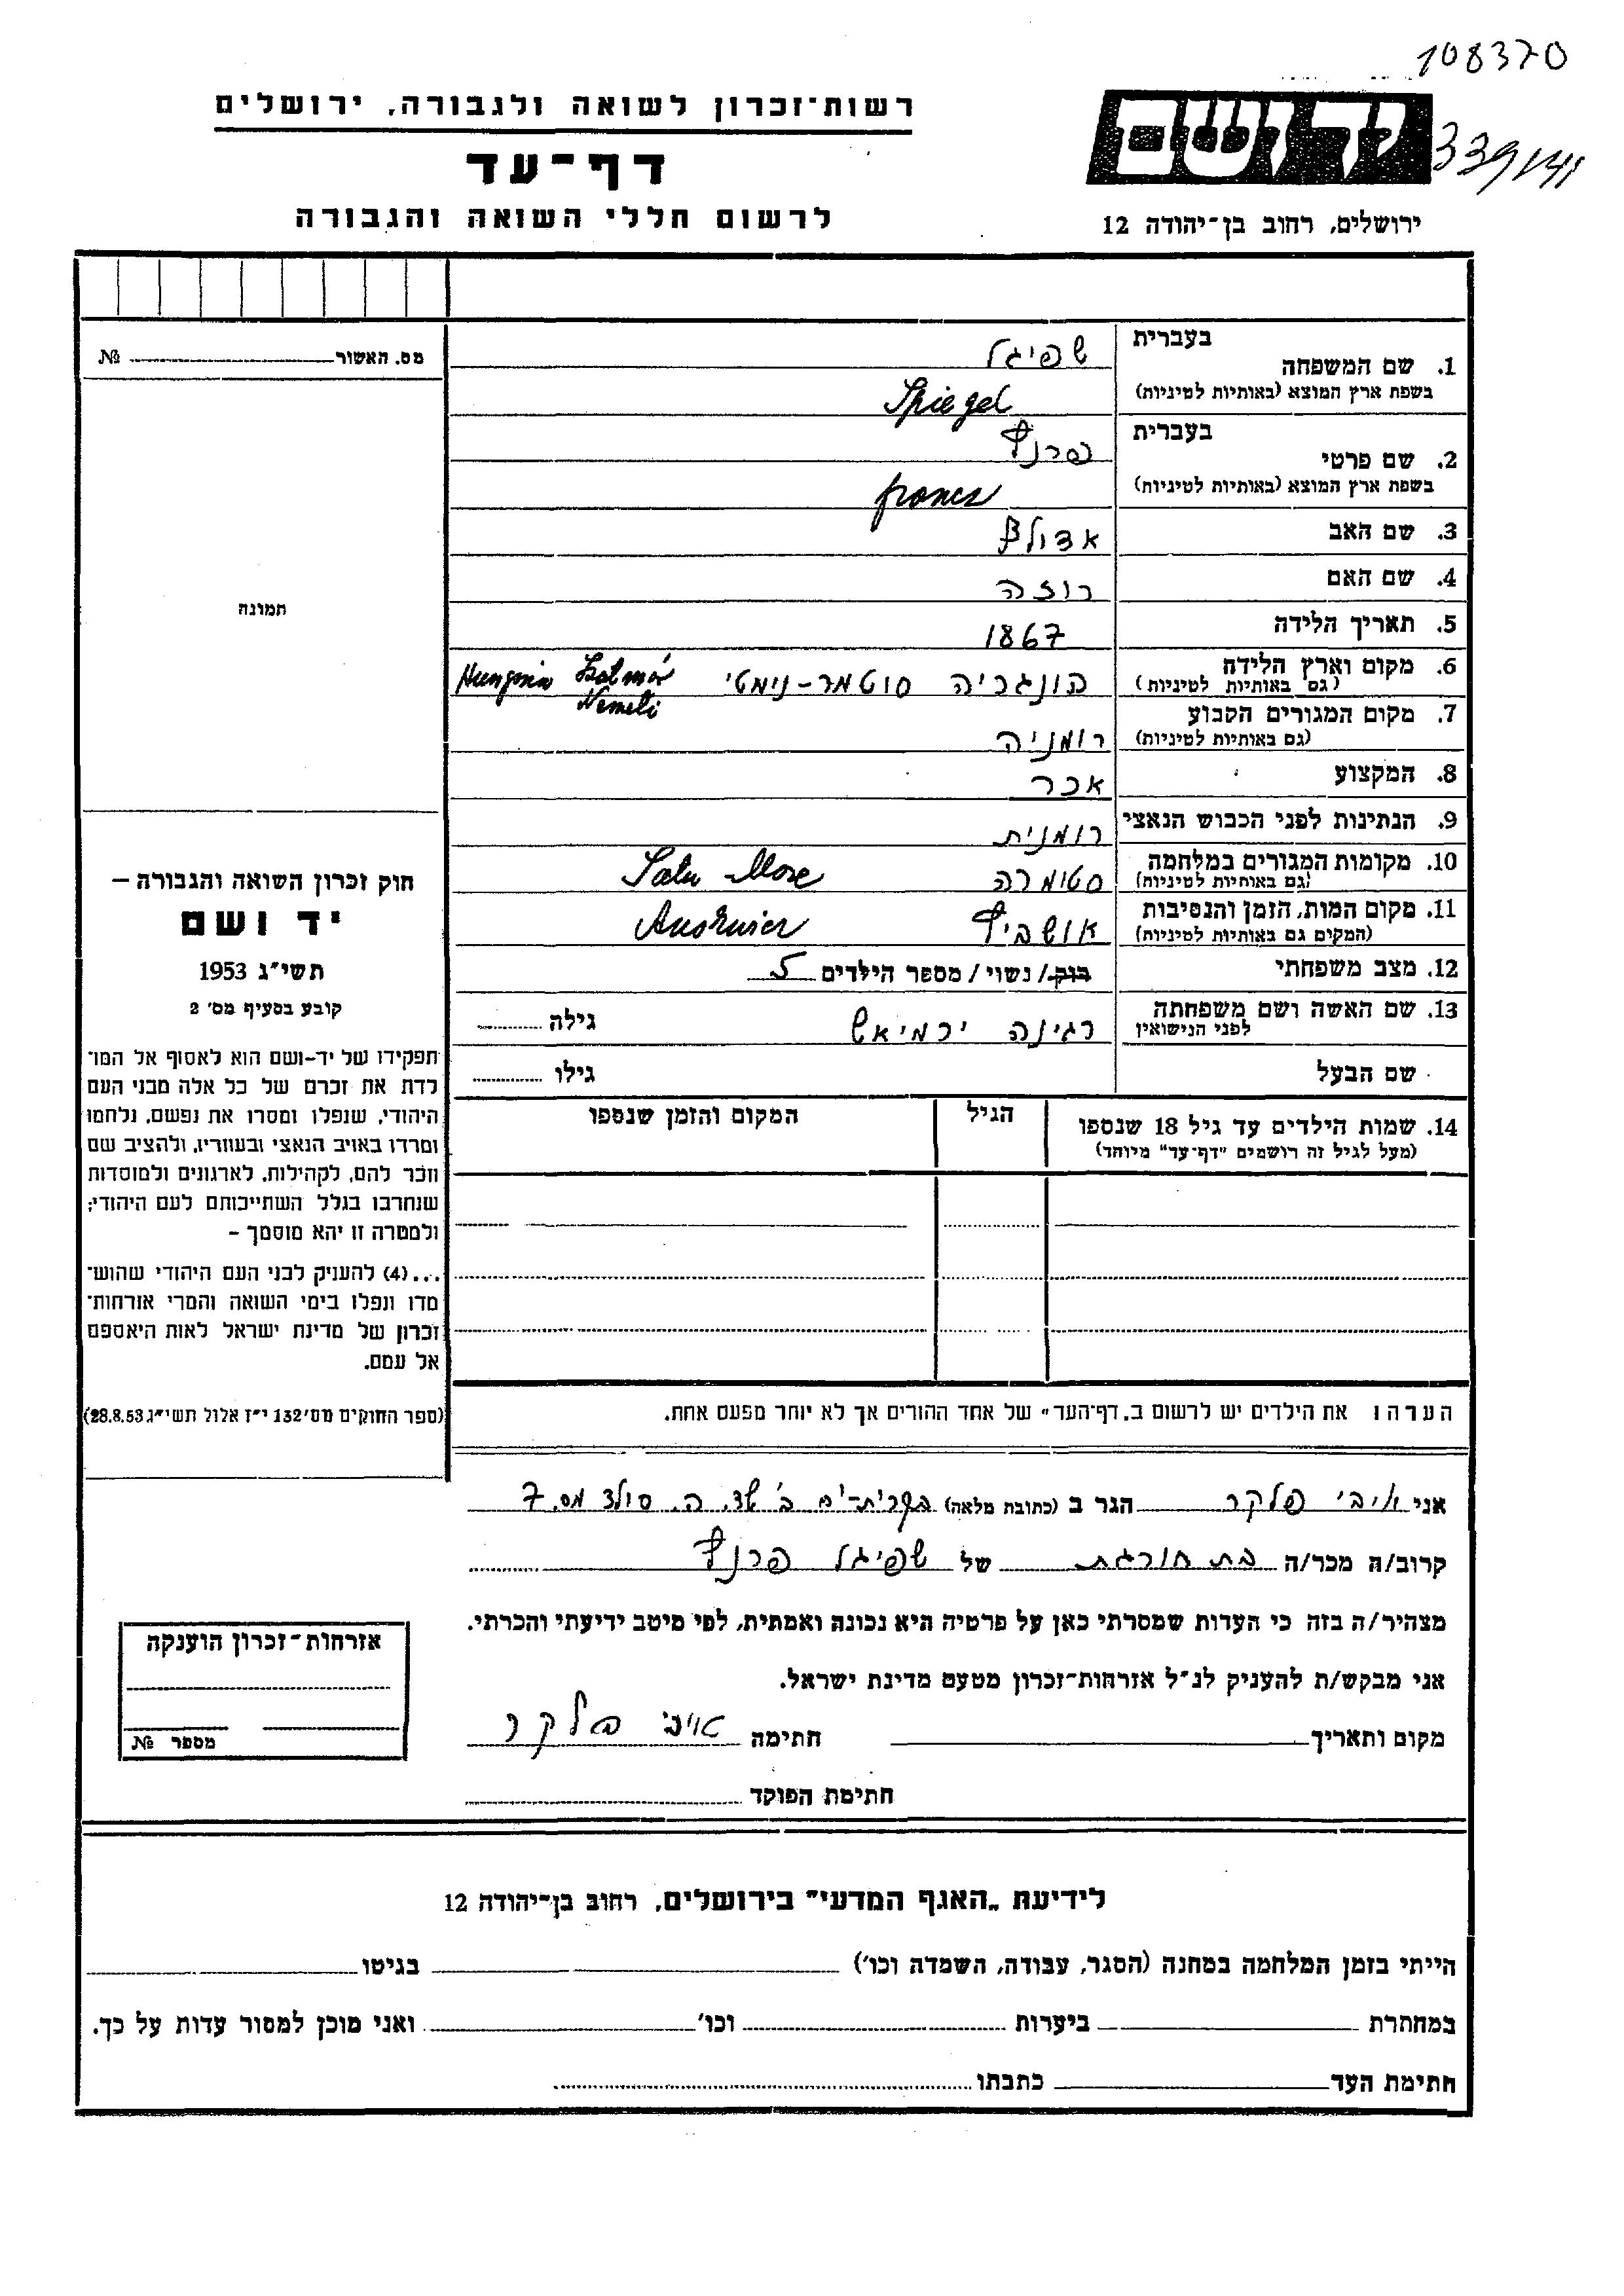 108370
רשות-זכרון לשואה ולגבורה, ירושלים
יד ושם
דף-עד
לרשום חללי השואה והגבורה
ירושלים, רחוב בן-יהודה 12
מס. האשור № 
1. שם המשפחה בעברית שפיגל
בשפת ארץ המוצא (באותיות לטיניות) Spiegel
2. שם פרטי בעברית פרנץ
בשפת ארץ המוצא (באותיות לטיניות) francz
3. שם האב אדולף
4. שם האם רוזה
5. תאריך הלידה 1867
6. מקום וארץ הלידה (גם באותיות לטיניות) הונגריה סוטמר-נימטי Szatmár Nemeti
7. מקום המגורים הקבוע (גם באותיות לטיניות) רומניה
8. המקצוע אכר
9. הנתינות לפני הכבוש הנאצי רומנית
10. מקומות המגורים במלחמה (גם באותיות לטיניות) סטימרה Satu-Mare
11. מקום המות, הזמן והנסיבות (המקום גם באותיות לטיניות) אושביץ
12. מצב משפחתי רוק/ נשוי/ מספר הילדים 5
13. שם האשה ושם משפחתה לפני הנישואין רגינה ירמיאש גילה
שם הבעל גילו
14. שמות הילדים עד גיל 18 שנספו הגיל המקום והזמן שנספו
(מעל לגיל זה רושמים "דף-עד" מיוחד)
הערה: את הילדים יש לרשום ב„דף-העד" של אחד ההורים אך לא יותר מפעם אחת.
תמונה
חוק זכרון השואה והגבורה –
יד ושם
תשי"ג 1953
קובע בסעיף מס' 2
תפקידו של יד-ושם הוא לאסוף אל המו־
לדת את זכרם של כל אלה מבני העם
היהודי, שנפלו ומסרו את נפשם, נלחמו
ומרדו באויב הנאצי ובעוזריו, ולהציב שם
וזכר להם, לקהילות, לארגונים ולמוסדות
שנחרבו בגלל השתייכותם לעם היהודי;
ולמטרה זו יהא מוסמך –
...(4) להעניק לבני העם היהודי שהוש־
מדו ונפלו בימי השואה והמרי אזרחות־
זכרון של מדינת ישראל לאות היאספם
אל עמם.
(ספר החוקים מס' 132 י"ז אלול תשי"ג 28.8.53)
אני איבי פלקר הגר ב (כתובת מלאה) בקרית-ים ב' שד. ה. סולד מס. 7
קרוב/ה מכר/ה בת חורגת של שפיגל פרנץ
מצהיר/ה בזה כי העדות שמסרתי כאן על פרטיה היא נכונה ואמתית, לפי מיטב ידיעתי והכרתי.
אני מבקש/ת להעניק לנ"ל אזרחות-זכרון מטעם מדינת ישראל.
מקום ותאריך חתימה איבי פלקר
חתימת הפוקד
אזרחות-זכרון הוענקה
מספר №
לידיעת „האגף המדעי" בירושלים, רחוב בן-יהודה 12
הייתי בזמן המלחמה במחנה (הסגר, עבודה, השמדה וכו') בגיטו
במחתרת ביערות וכו' ואני מוכן למסור עדות על כך.
חתימת העד כתבתו